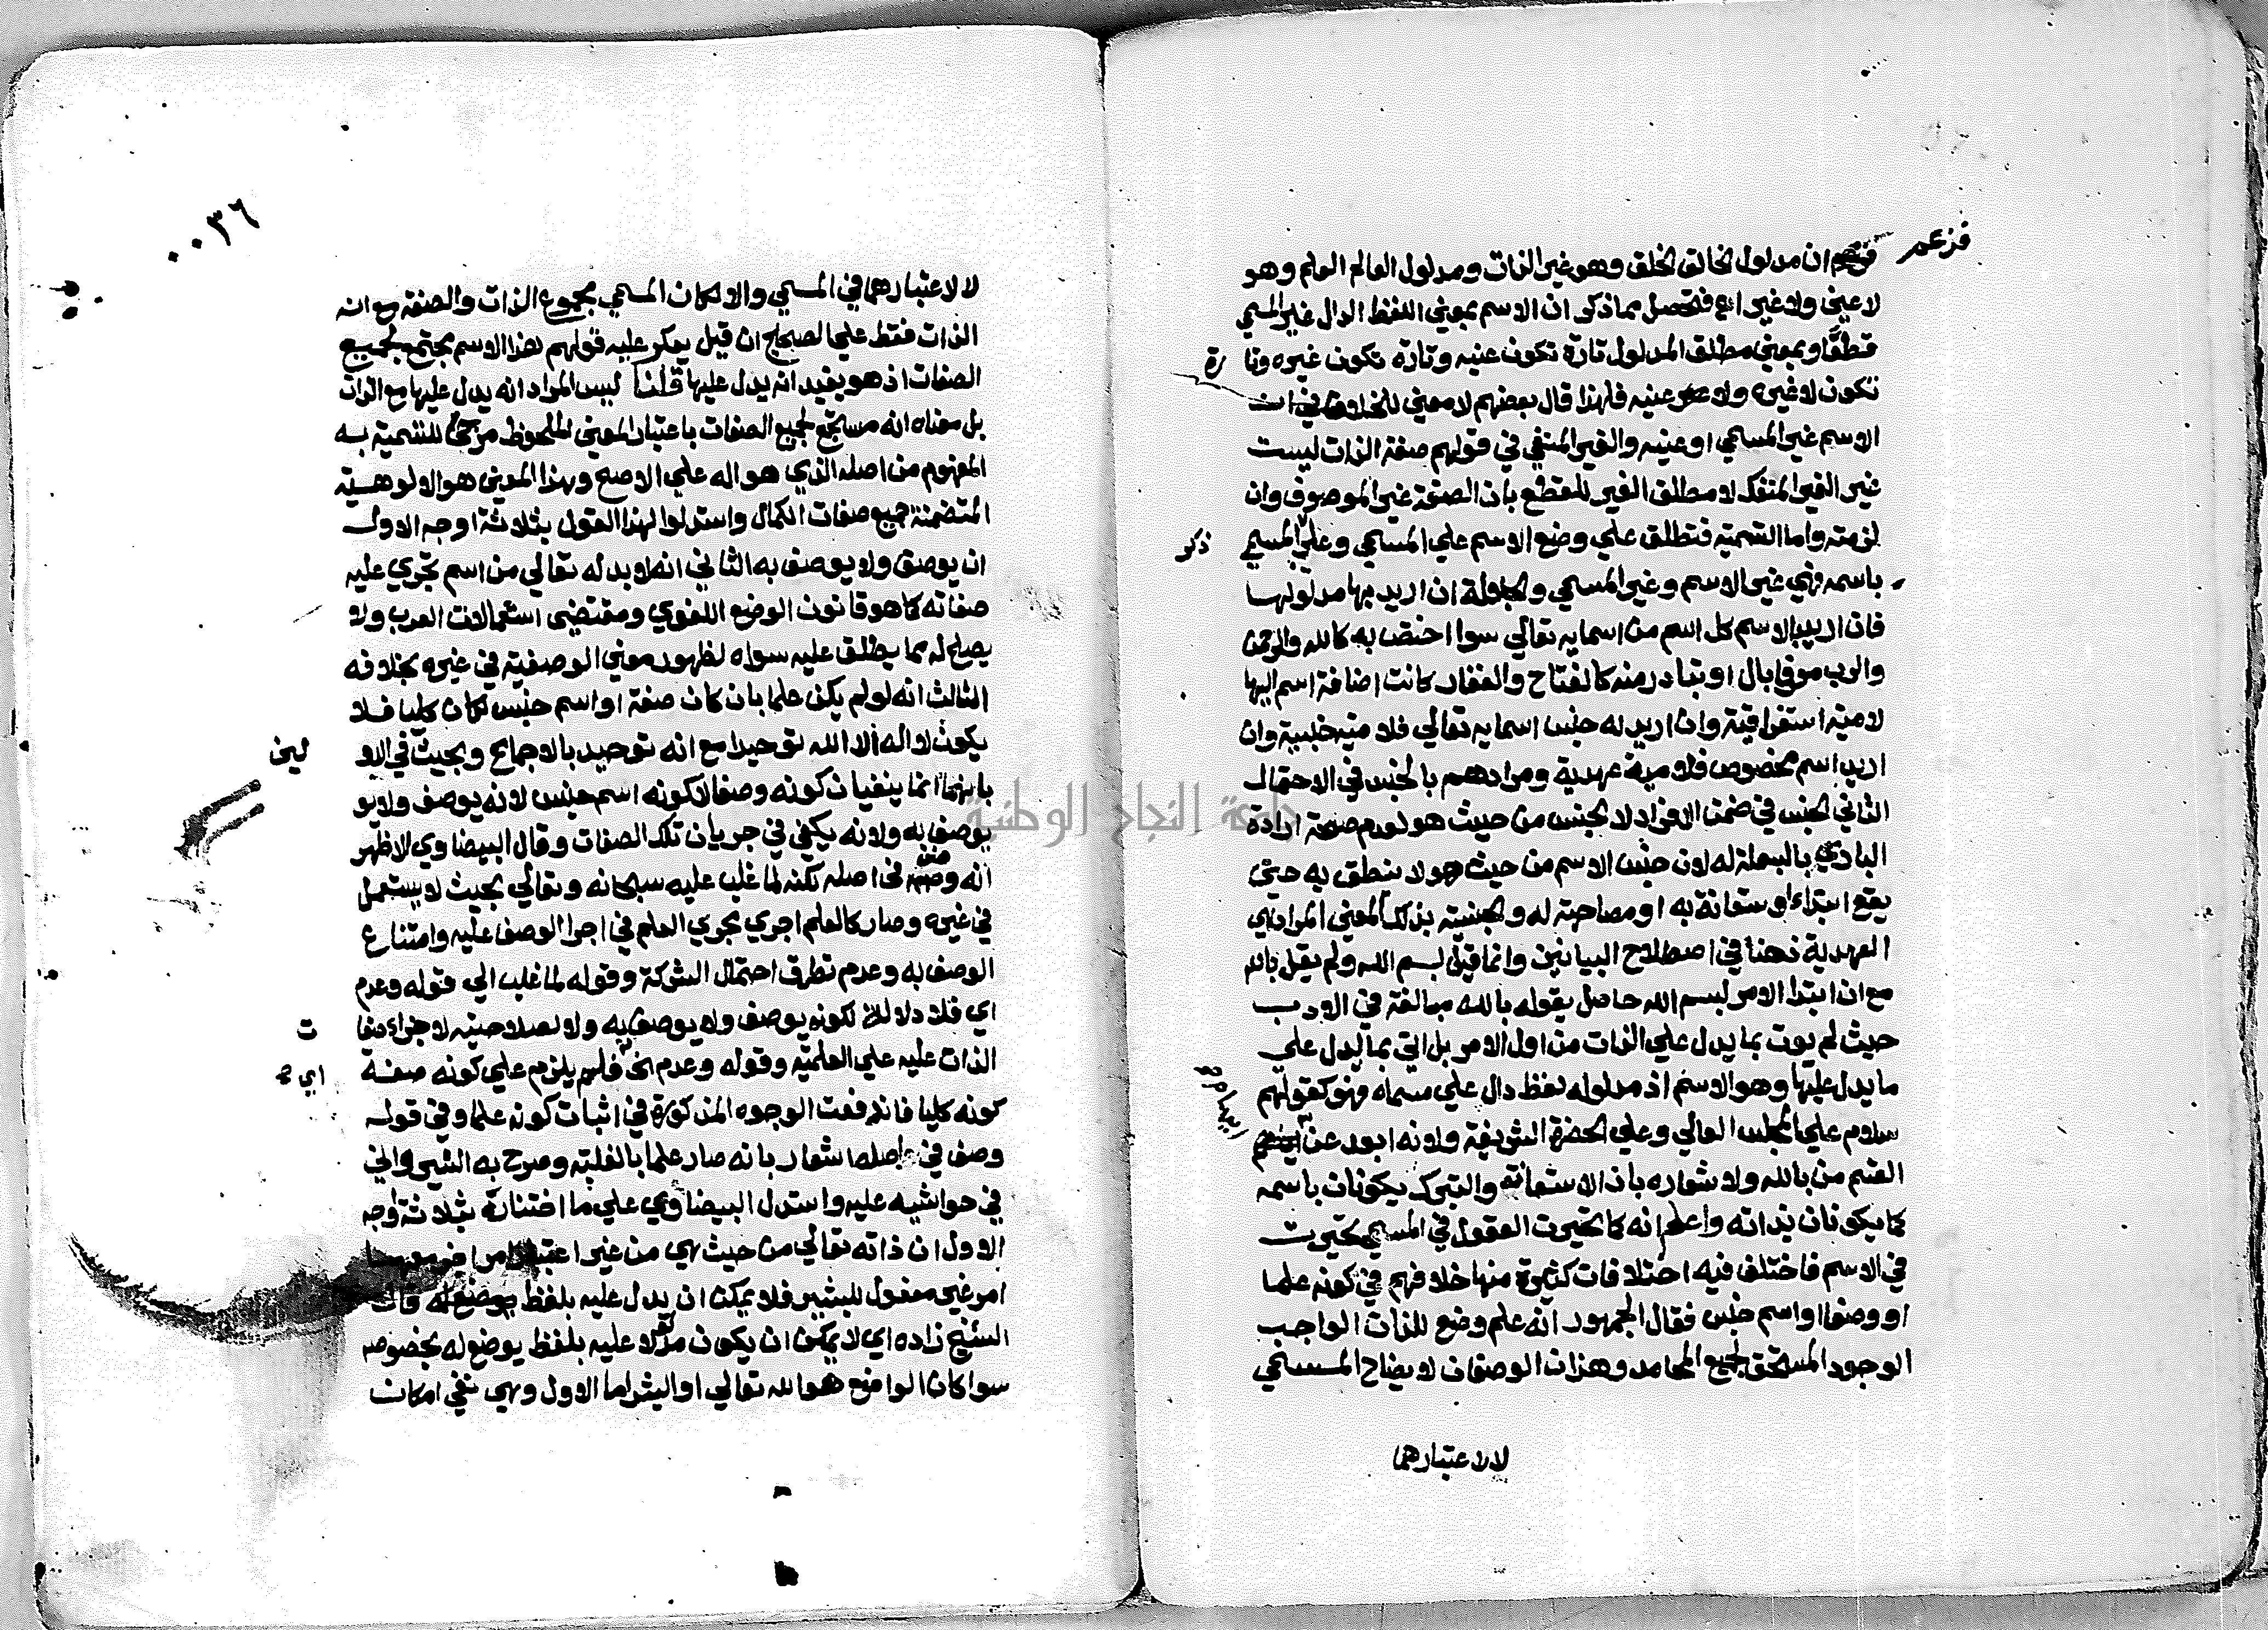 فزعم
ان مدلول الخالق الخلق وهو غير الذات ومدلول العالم العلم وهو
لا عينى ولا غير فتحصل مما ذكر ان الاسم بمعنى اللفظ الدال غير المسمي
قطعا وبمعني مطلق المدلول تارة تكون عنيه وتارة تكون غيره وتا رة
تكون لا غيره ولا عنيه فلهذا قال بعضهم لا معني للخلاف في ان
الاسم غير المسمي او عنيه والغير المنفي في قولهم صفة الذات ليست
غير الغير المنفك لا مطلق الغير للقطع بان الصفة غير الموصوف وان
لزمته واما التسمية فتطلق علي وضع الاسم علي المسمي وعلي ذكر المسمي
باسمه فهي غير الاسم وغير المسمي والجلالة ان اريد بها مدلولها
فان اريد بالاسم كل اسم من اسمايه تعالي سوا اختص به كالله والرحمن
والرب موق بال او تبادر منه كالفتاح والغفار كانت اضافة اسم اليها
لامية استغراقية وان اريد له جنس اسمايه تعالي فلامية جنسية وان
اريد اسم مخصوص فلامية عهدية ومرادهم بالجنس في الاحتمال
الثاني الجنس في ضمن الافراد لا الجنس من حيث هو لعدم صحة ارادة
البادي بالبسملة له لان جنس الاسم من حيث هو لا ينطق به حتى
يقع ابتداء او ستعانة به او مصاحبة له والجنسية بذلك المعنى المراد هي
العهدية ذهنا في اصطلاح البيانين وانما قيل بسم الله ولم يقل بالله
مع ان ابتدا الامر لبسم الله حاصل بقوله بالله مبالغة في الادب
حيث لم يوت بما يدل علي الذات من اول الامر بل اتي بما يدل علي
ما يدل عليها وهو الاسم اذ مدلوله لفظ دال علي مسماه فهو كقولهم
سلام علي المجلس العالي وعلي الحضرة الشريفة ولانه ابعد عن ايهام
القسم من بالله ولاشعاره بان الاستعانة والتبرك يكونان باسمه
كما يكونان بذاته واعلم انه كما تحيرت العقول في المسمي تحيرت
في الاسم فاختلف فيه اختلافات كثيرة منها خلافهم في كونه علما
او وصفا او اسم جنس فقال الجمهور انه علم وضع للذات الواجب
الوجود المستحق لجميع المحامد وهذان الوصفان لايضاح المسمي
لا لاعتبارهما
٠٠٣٦
لا لاعتبارهما في المسمي والا لكان المسمي مجموع الذات والصفة مع انه
الذات فقط علي الصحيح ان قيل يعكر عليه قولهم هذا الاسم يجتمع لجميع
الصفات اذ هو يفيد انه يدل عليها قلنا ليس المراد انه يدل عليها مع الذات
بل معناه انه مستجمع لجميع الصفات باعتبار المعني الملحوظ مرجحا للتسمية به
المفهوم من اصله الذي هو اله علي الاصح وبهذا المعنى هو الالوهية
المتضمنة جميع صفات الكمال واستدلوا لهذا القول بثلاثة اوجه الاول
ان يوصف ولا يوصف به الثاني انه لا بد له تعالي من اسم تجري عليه
صفاته كما هو قانون الوضع اللغوي ومقتضى استعمالات العرب ولا
يصلح له مما يطلق عليه سواه لظهور معني الوصفية في غيره بخلافه
الثالث انه لو لم يكن علما بان كان صفة او اسم جنس لكان كليا فلا
يكون لا اله الا الله توحيدا مع انه توحيد بالاجماع وبحيث في الاو لين
بانهما انما ينفيان كونه وصفا لا كونه اسم جنس لانه يوصف ولا يو
يوصف به ولانه يكفي في جريان تلك الصفات وقال البيضاوي الاظهر
انه وصف في اصله لكنه لما غلب عليه سبحانه وتعالي بحيث لا يستعمل
في غيره وصار كالعلم اجري مجري العلم في اجرا الوصف عليه وامتناع
الوصف به وعدم تطرق احتمال الشركة وقوله لما غلب الي قوله وعدم
اي فلا دلالة لكونه يوصف ولا يوصف به ولا لصلاحيته لاجراء صفا ت
الذات عليه علي العلمية وقوله وعدم الخ اي فلم يلزم علي كونه صفة
كونه كليا فاندفعت الوجوه المذكورة في اثبات كونه علما وفي قوله
وصف في اصله اشعار بانه صار علما بالغلبة وصرح به الشيرواني
في حواشيه عليه واستدل البيضاوي علي ما اختاره بثلاثة اوجه
الاول ان ذاته تعالي من حيث هي من غير اعتبار امر اخر معها
امر غير معقول للبشر فلا يمكن ان يدل عليه بلفظ يوضع له قال
الشيخ زاده اي لا يمكن ان يكون مدلولا عليه بلفظ يوضع له بخصوصه
سوا كان الواضع هو الله تعالي او البشر اما الاول وهي نفي امكان
جامعة النجاح الوطنية